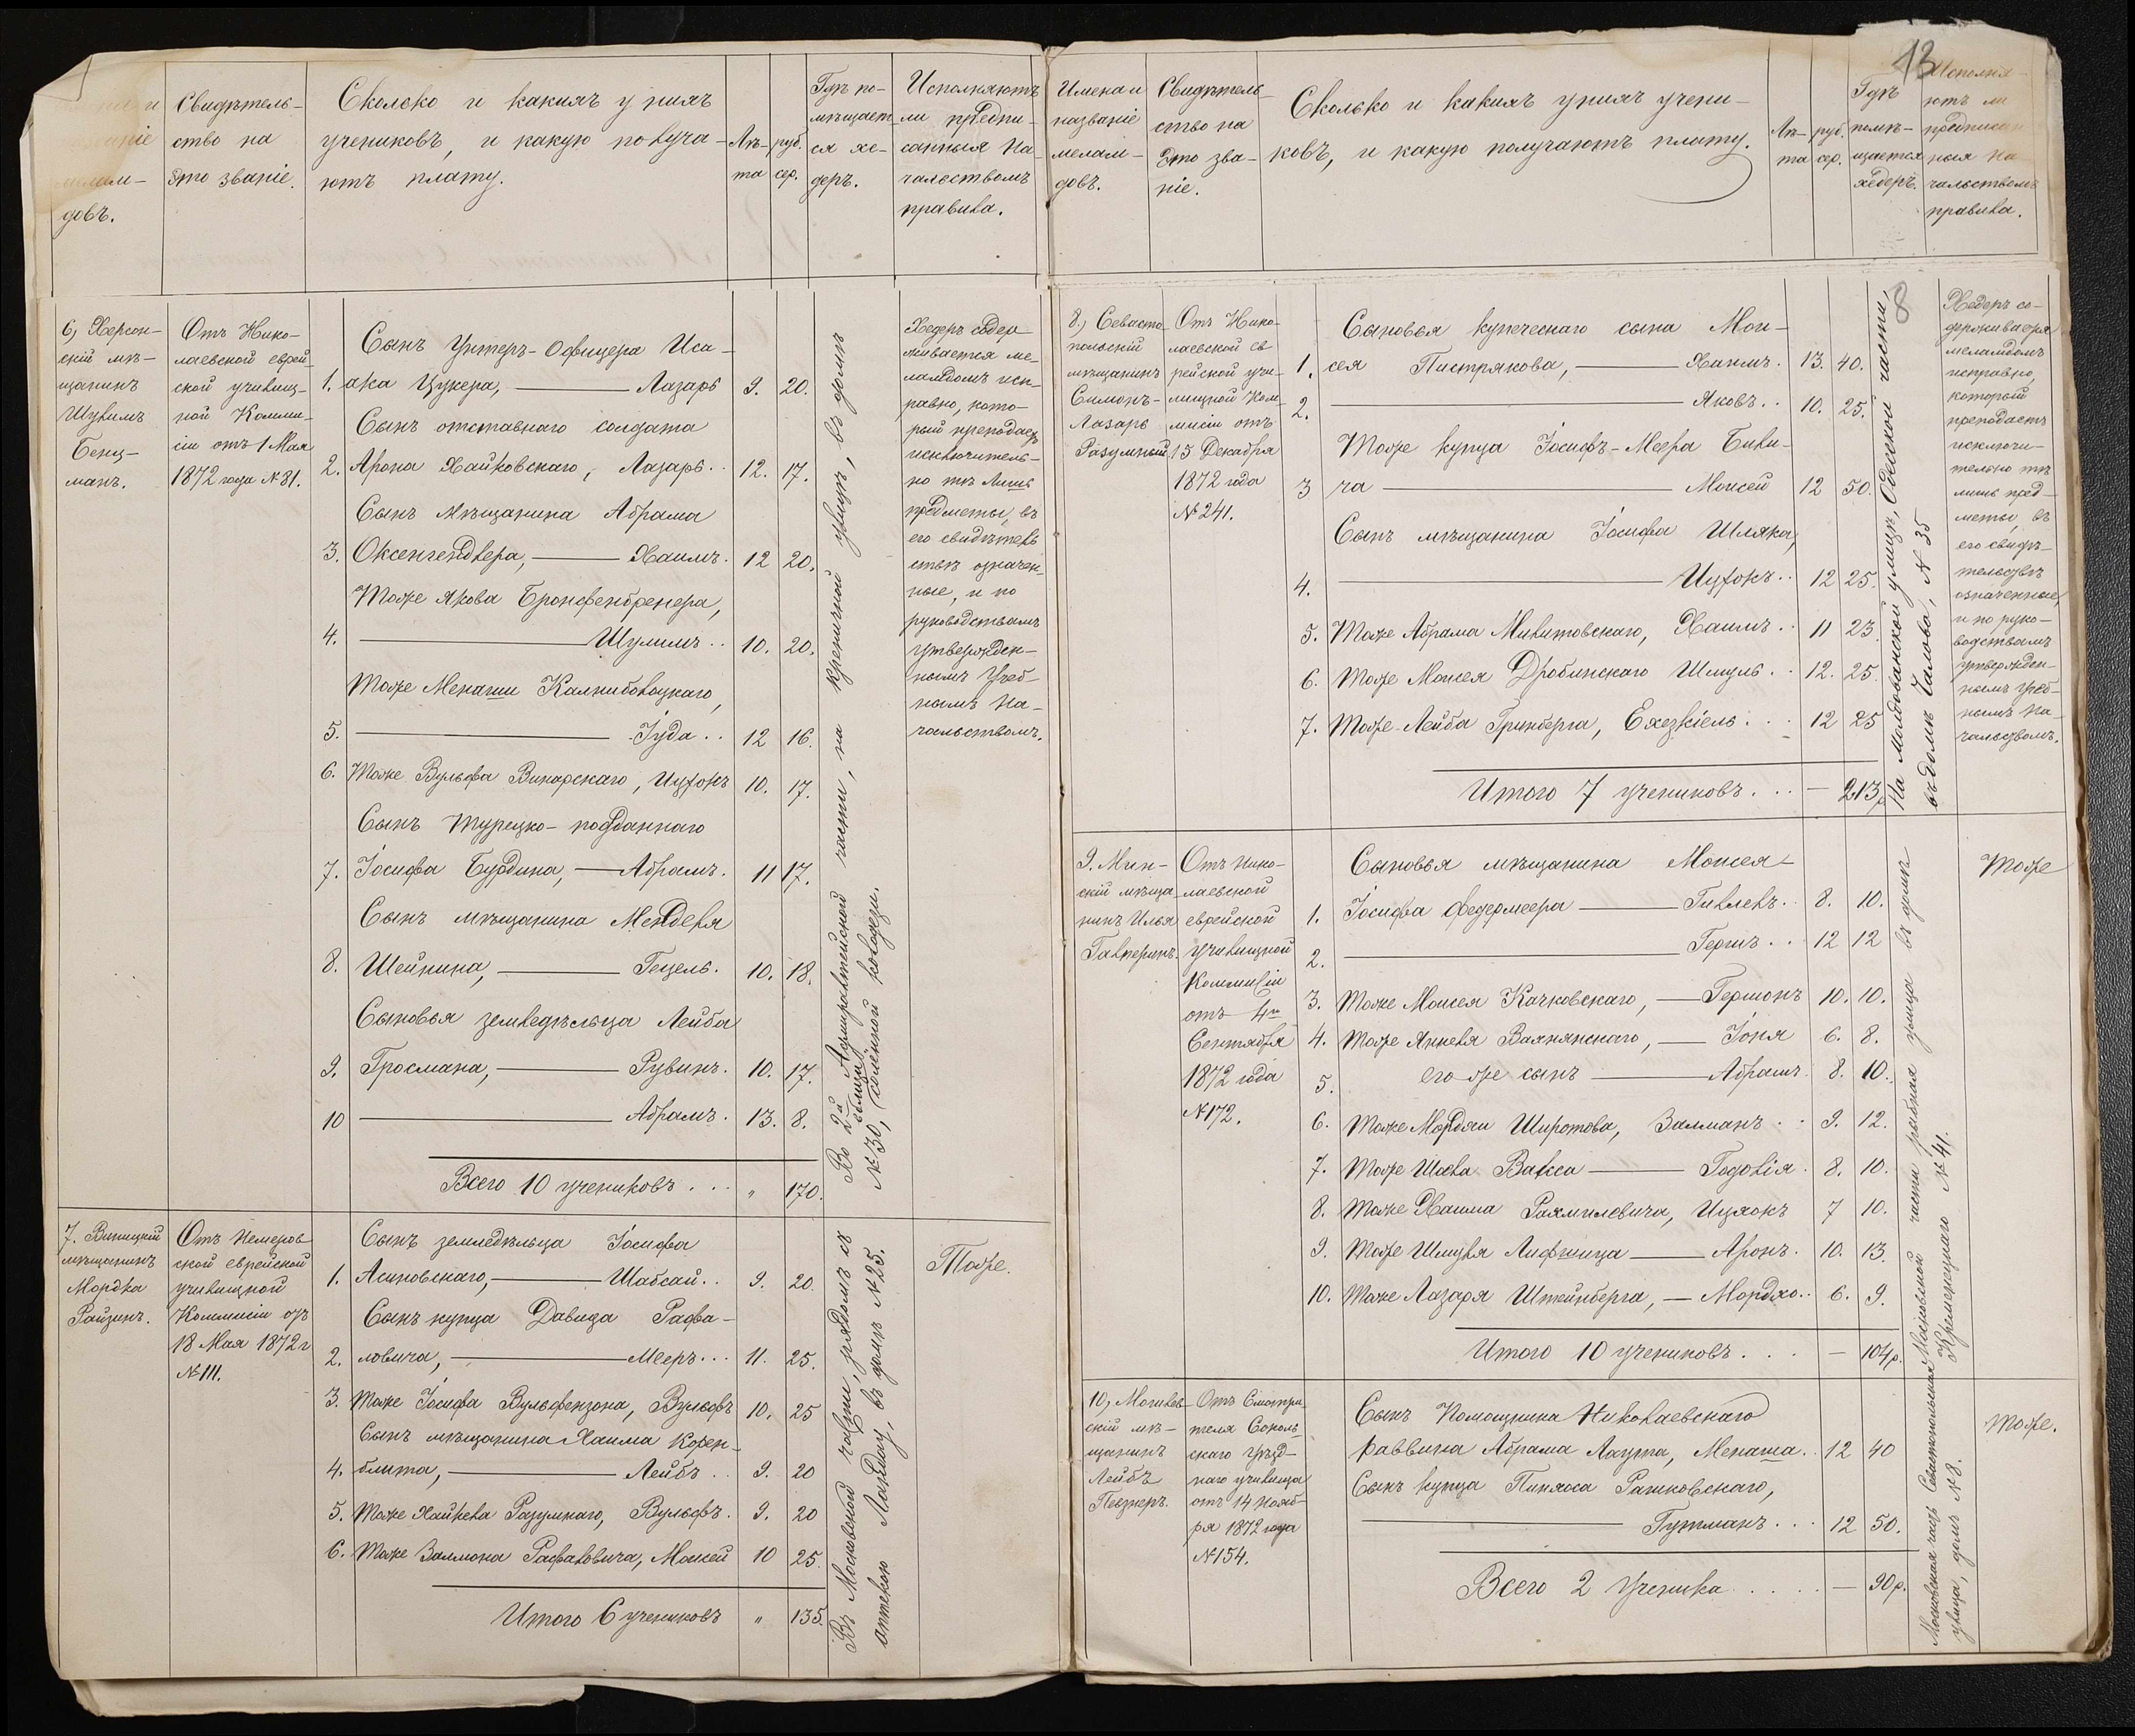 13
Свидѣтель-
ство на
это званіе.
мелам-
довъ.
Сколько и какихъ у нихъ
учениковъ, и какую получа-
ютъ плату.
Лѣ-
та
руб.
сер.
Гдѣ по-
мѣщает-
ся хе-
деръ.
Исполняютъ
ли предпи-
санныя На-
чальствомъ
правила.
6, Херсон-
скій мѣ-
щанинъ
Шулимъ
Бенц-
манъ.
Отъ Нико-
лаевской еврей-
ской училищ-
ной Комми-
сіи отъ 1 Мая
1872 года № 81.
Сынъ Унтеръ-Офицера Иса-
1. ака Цукера, — Лазарь 9. 20.
Сынъ отставнаго солдата
2. Арона Хайковскаго, Лазарь.. 12. 17.
Сынъ мѣщанина Абрама
3. Оксенгендлера, — Хаимъ. 12 20.
Тоже Якова Бронфенбренера,
4. — Шулимъ.. 10. 20.
Тоже Менаши Калниболоцкаго,
5. — Іуда.. 12 16.
6. Тоже Вульфа Винарскаго, Ицхокъ 10. 17.
Сынъ турецко-подданнаго
7. Іосифа Бурдина, — Абрамъ. 11 17.
Сынъ мѣщанина Менделя
8. Шейнина, — Гецель. 10. 18.
Сыновья земледѣльца Лейба
9. Гросмана, — Рувинъ. 10. 17.
10 — Абрамъ. 13. 8.
Всего 10 учениковъ... „ 170.
Во 2й Адмиралтейской части, на кузнечной улицѣ, въ домѣ
№ 30, солёной колодези.
Хедеръ содер-
живается ме-
ламдомъ исп-
равно, кото-
рый преподаетъ
исключитель-
но тѣ лишь
предметы, въ
его свидѣтель-
ствѣ означен-
ные, и по
руководствамъ
утвержден-
нымъ Учеб-
нымъ На-
чальствомъ.
7. Виницкій
мѣщанинъ
Мордка
Райзинъ.
Отъ Немиров-
ской еврейской
училищной
Коммисіи отъ
18 Мая 1872 г
№ 111.
Сынъ земледѣльца Іосифа
1. Асиновскаго, — Шабсай.. 9. 20.
Сынъ купца Давида Рафа-
2. ловича, — Мееръ... 11. 25.
3. Тоже Іосифа Вульфензона, Вульфъ 10. 25
Сынъ мѣщанина Хаима Корен-
4. блита, — Лейбъ.. 9. 20
5. Тоже Хайкеля Разумнаго, Вульфъ. 9. 20
6. Тоже Залмона Рафаловича, Моисей 10 25.
Итого 6 учениковъ „ 135.
Въ Московской части, рядомъ съ
аптекою Ландау, въ домѣ № 25.
Тоже.
Имена и
названіе
мелам-
довъ.
Свидѣтель-
ство на
это зва-
ніе.
Сколько и какихъ у нихъ учени-
ковъ, и какую получаютъ плату.
Лѣ-
та
руб.
сер.
Гдѣ
помѣ-
щается
хедеръ.
Исполня-
ютъ ли
предписан-
ныя На-
чальствомъ
правила.
8
8, Севасто-
польскій
мѣщанинъ
Симонъ-
Лазарь
Разумный
Отъ Нико-
лаевской ев-
рейской учи-
лищной Ком-
мисіи отъ
15 Декабря
1872 года
№ 241.
Сыновья купеческаго сына Мои-
1. сея Пистрякова, — Хаимъ. 13. 40.
2. — Яковъ.. 10. 25.
Тоже купца Іосифъ-Меера Били-
3 ча — Моисей 12 50.
Сынъ мѣщанина Іосифа Шляка,
4. — Ицхокъ.. 12 25.
5. Тоже Абрама Милитовскаго, Хаимъ.. 11 23.
6. Тоже Моисея Дробинскаго Шмуль.. 12. 25.
7. Тоже Лейба Гринберга, Ехезкіель... 12 25
Итого 7 учениковъ... — 213 р.
На Молдованской улицѣ, Одесской части,
въ домѣ Чалова, № 35
Хедеръ со-
держивается
меламдомъ
исправно,
который
преподаетъ
исключи-
тельно тѣ
лишь пред-
меты, въ
его свидѣ-
тельствѣ
означенные,
и по руко-
водствамъ
утвержден-
нымъ Учеб-
нымъ На-
чальствомъ.
9. Мин-
скій мѣща-
нинъ Илья
Гальперинъ.
Отъ Нико-
лаевской
еврейской
училищной
Коммисіи
отъ 4го
Сентября
1872 года
№ 172.
Сыновья мѣщанина Моисея-
1. Іосифа Федермеера — Гиллель. 8. 10.
2. — Гершъ.. 12 12
3. Тоже Моисея Качковскаго, — Гершонъ 10. 10.
4. Тоже Янкеля Вахнянскаго, — Іоня 6. 8.
5. его же сынъ — Абрамъ. 8. 10.
6. Тоже Мордхи Широтова, Залманъ.. 9. 12.
7. Тоже Шаела Вакса — Годолія. 8. 10.
8. Тоже Хаима Рахмилевича, Ицхокъ 7 10.
9. Тоже Шмуля Лифшица — Аронъ. 10. 13.
10. Тоже Лазаря Штейнберга, — Мордхо.. 6. 9.
Итого 10 учениковъ... — 104 р.
Московской части рыбная улица въ домѣ
Кременецкаго № 41.
Тоже
10, Могилев-
скій мѣ-
щанинъ
Лейбъ
Певзнеръ.
Отъ Смотри-
теля Соколь-
скаго Уѣзд-
наго училища
отъ 14 Нояб-
ря 1872 года
№ 154.
Сынъ Помощника Николаевскаго
раввина Абрама Лаута, Менаша.. 12 40
Сынъ купца Пинхоса Рашковскаго,
— Гутманъ... 12 50.
Всего 2 ученика.... — 90 р.
Московская часть Севастопольская
улица, домъ № 8.
Тоже.